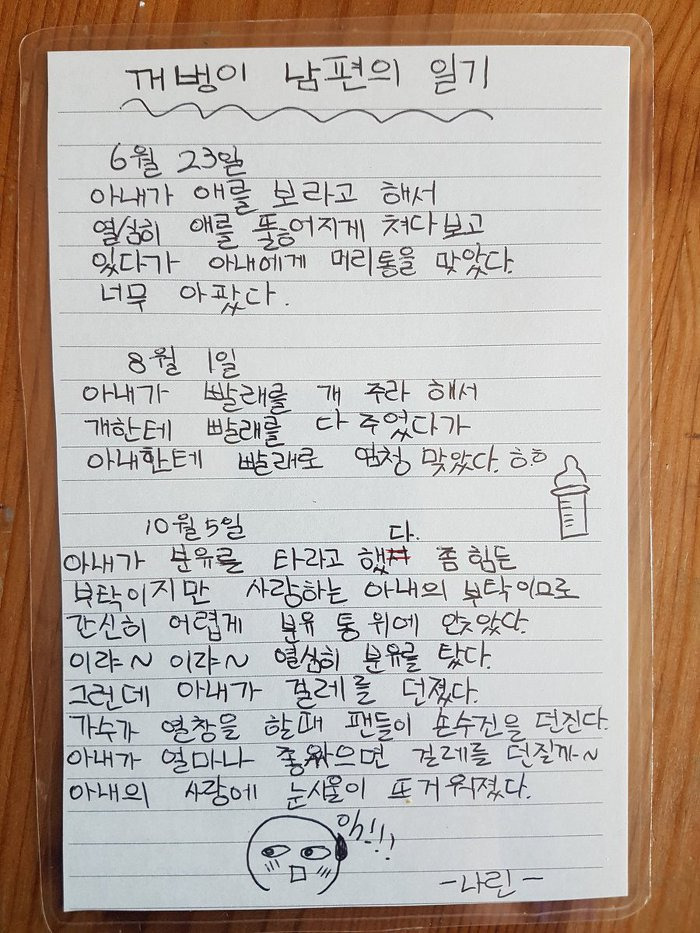 꺼벙이 남편의 일기
6월 23일
아내가 애를 보라고 해서
열심히 애를 뚫어지게 쳐다보고
있다가 아내에게 머리통을 맞았다.
너무 아팠다.
8월 1일
아내가 빨래를 개 주라 해서
개한테 빨래를 다 주었다가
아내한테 빨래로 엄청 맞았다. ㅎㅎ
10월 5일
아내가 분유를 타라고 했다. 좀 힘든
부탁이지만 사랑하는 아내의 부탁이므로
간신히 어렵게 분유 통 위에 앉았다.
이랴~ 이랴~ 열심히 분유를 탔다.
그런데 아내가 걸레를 던졌다.
가수가 열창을 할때 팬들이 손수건을 던진다.
아내가 얼마나 좋았으면 걸레를 던질까~
아내의 사랑에 눈시울이 뜨거워졌다.
-나린-